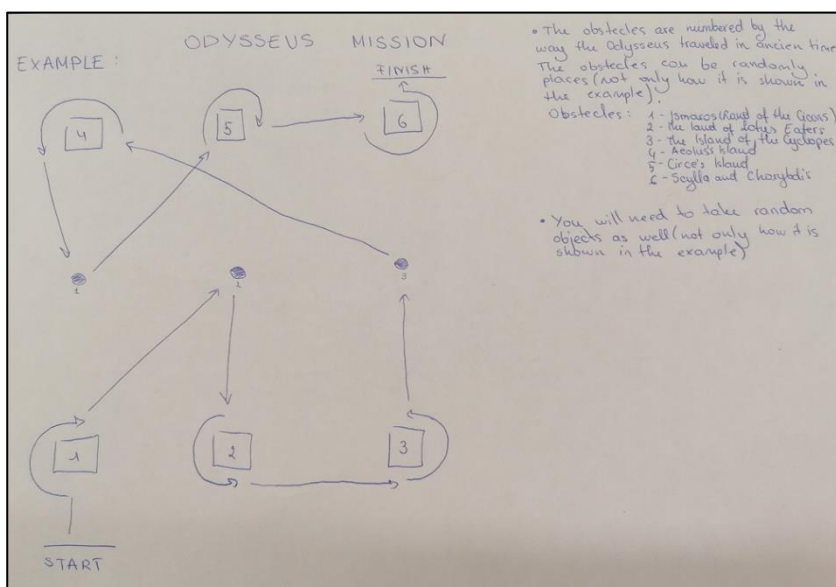 ODYSSEUS MISSION
EXAMPLE:
FINISH
4
5
6
1
2
3
1
2
3
START
• The obstecles are numbered by the
way the Odysseus traveled in ancient time
The obstecles can be randomly
places (not only how it is shown in
the example).
Obstecles: 1 - Ismaros (land of the Cicons)
2 - The land of Lotus Eaters
3 - The Island of the Cyclopes
4 - Aeolus's Island
5 - Circe's Island
6 - Scylla and Charybdis
• You will need to take random
objects as well (not only how it is
shown in the example)